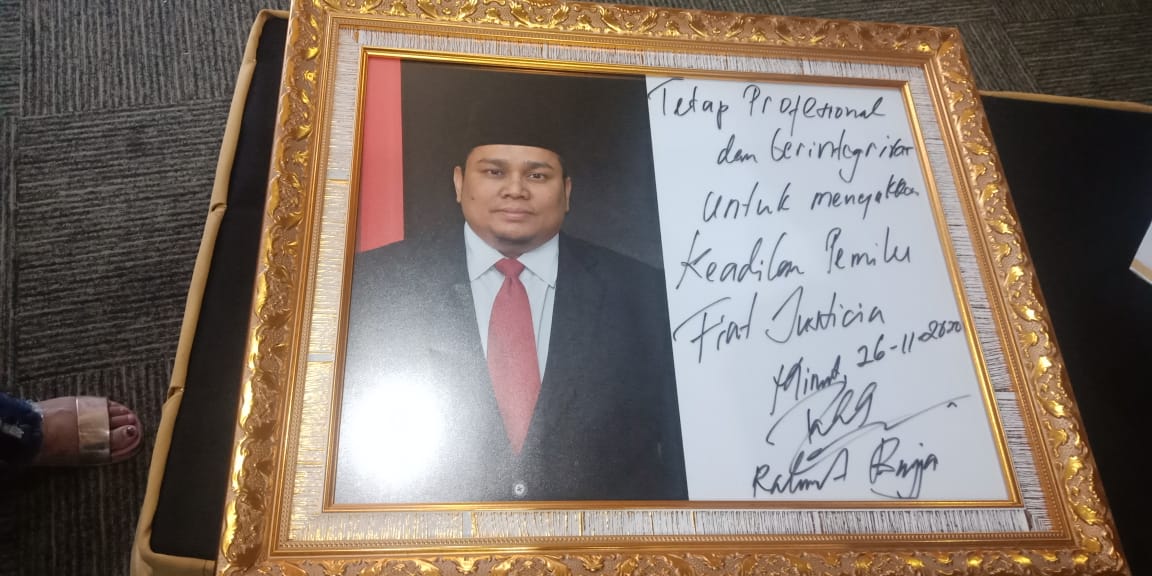 Tetap Profesional
dan berintegritas
untuk menegakkan
Keadilan Pemilu
Fiat Justicia
26-11-2020
Rahmat Bagja